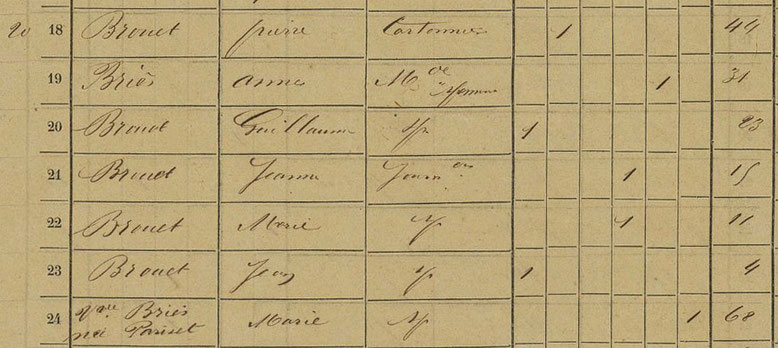 20 18 Brouet pierre Cartonnier 1 44
19 Briès anne Mde 1 31
20 Brouet Guillaume sp 1 23
21 Brouet Jeanne Journère 1 15
22 Brouet Marie sp 1 11
23 Brouet Jean sp 1 4
24 Vve Briès
née Pariset Marie sp 1 68